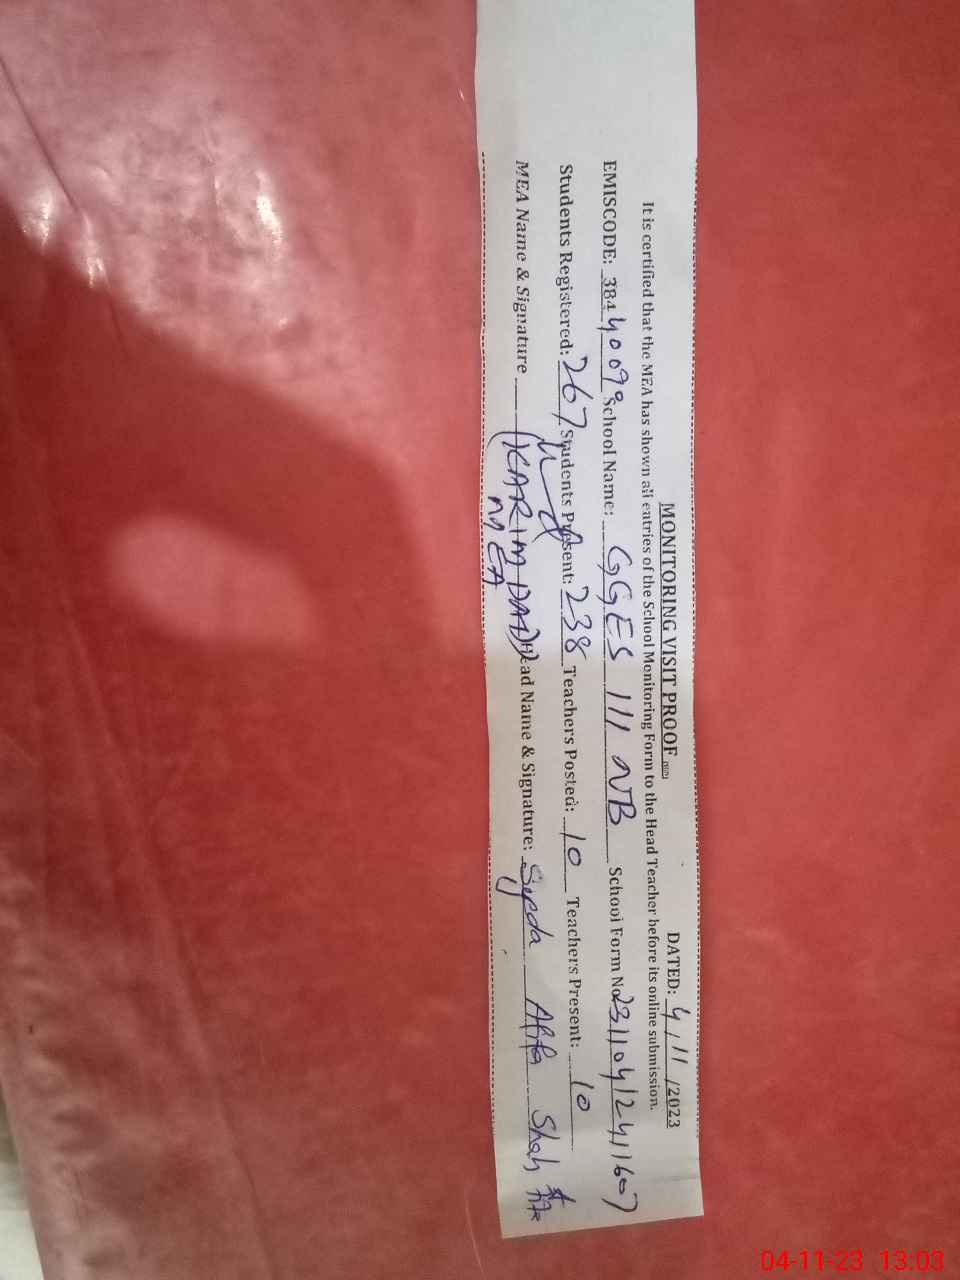 MONITORING VISIT PROOF DATED: 4/11/2023
It is certified that the MEA has shown all entries of the School Monitoring Form to the Head Teacher before its online submission.
EMISCODE: 38440099 School Name: GGES 111 NB School Form No 231104124111607
Students Registered: 267 Students Present: 238 Teachers Posted: 10 Teachers Present: 10
MEA Name & Signature (KARIM DAD) Head Name & Signature: Syeda Afifa Shah
MEA
04-11-23 13:03